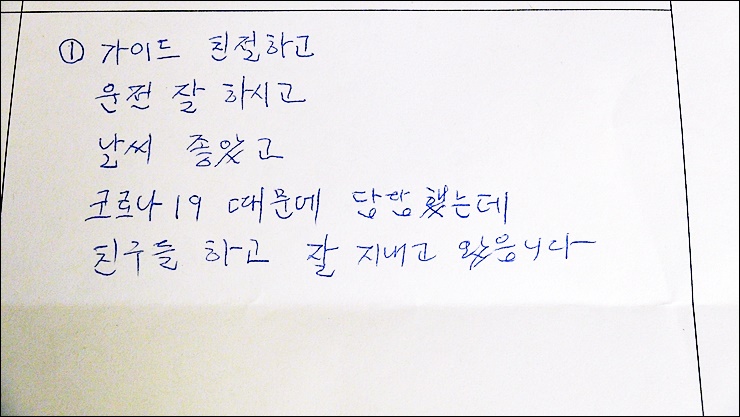 ① 가이드 친절하고
운전 잘 하시고
날씨 좋았고
코로나19 때문에 답답했는데
친구들 하고 잘 지내고 왔음니다